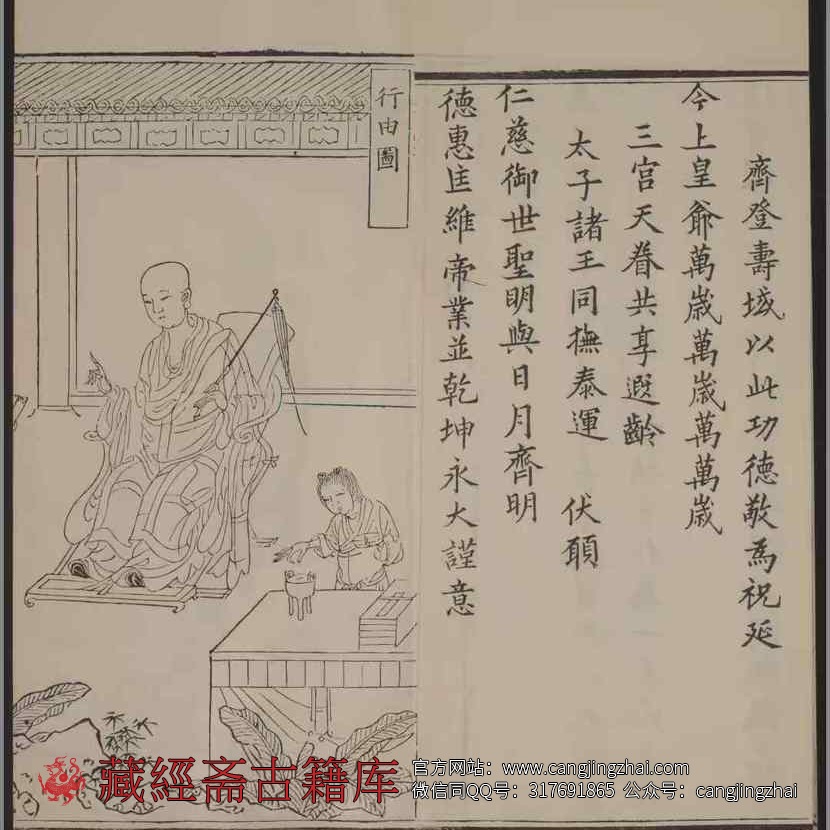 齊登壽域以此功德敬為祝延
今上皇爺萬歲萬歲萬萬歲
三宮天眷共享遐齡
太子諸王同撫泰運 伏願
仁慈御世聖明與日月齊明
德惠匡維帝業並乾坤永大謹意
行由圖
藏經斋古籍库
官方网站：www.cangjingzhai.com
微信同QQ号：317691865 公众号：cangjingzhai